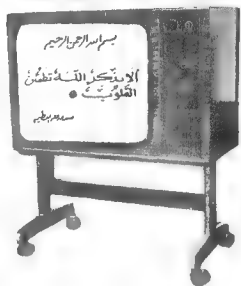 بسم الله الرحمن الرحيم
ألا بذكر الله تطمئن
القلوب
صدق الله العظيم